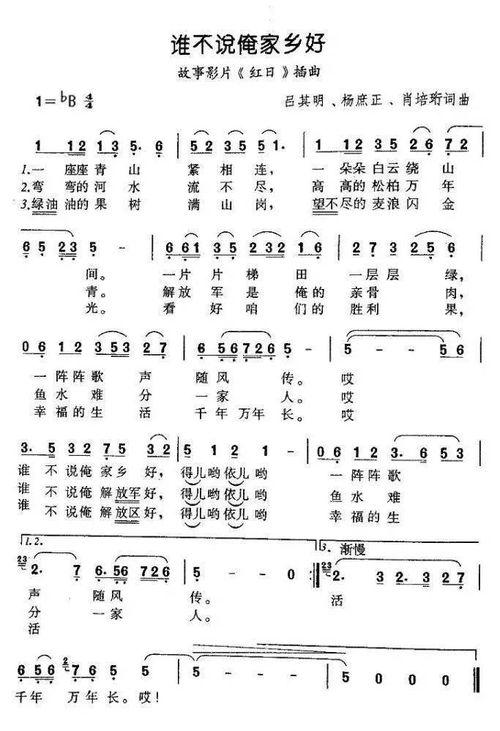 谁不说俺家乡好
故事影片《红日》插曲
1=♭B 4/4 吕其明、杨庶正、肖培珩词曲
1 12 135· 6 | 5 3532 51 6532 | 1 12 35 161
1.一 座座青山 紧相连， 一朵朵白云绕山
2.弯 弯的河水 流不尽， 高高的松柏万年
3.绿油油的果树 满山岗， 望不尽的麦浪闪金
65 235 - | 6 661 35 653 | 2 73 256 -
间。 一片片梯田 一层层绿，
青。 解放军是俺的亲骨肉，
光。 看好咱们的胜利果，
06 12 353 27 | 6 656726 5 - | 5 - - 56
一阵阵歌声 随风传。 哎
鱼水难分 一家人。 哎
幸福的生活 千年万年长。 哎
3· 5 32 75 32 | 5 1 2 1 - | 06 12 3·532 1
谁不说俺家乡好，得儿哟依儿哟 一阵阵歌
谁不说俺解放军好，得儿哟依儿哟 鱼水难
谁不说俺解放区好，得儿哟依儿哟 幸福的生
1.2. 3.渐慢
2· 7 6·56 7 2 | 5 - - 0 :| 2· 3 2·3 27
声 随风 传。 活
分 一家 人。
活
6 56 7·6 5 | 5 - - - | 5 0 0 0
千年 万年长。哎！